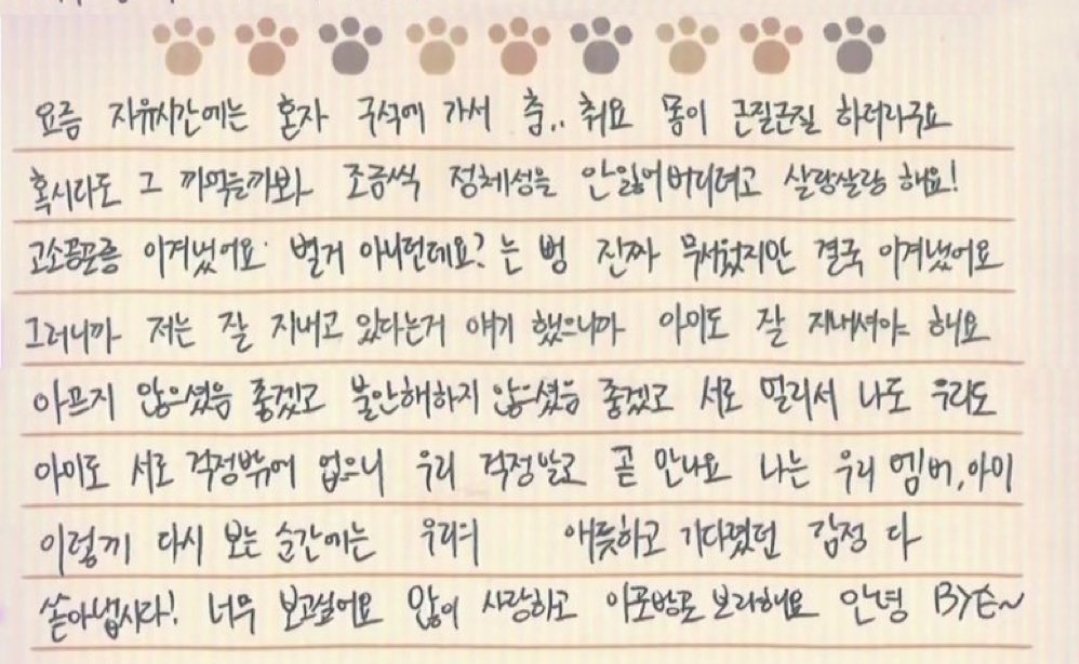 요즘 자유시간에는 혼자 구석에 가서 춤.. 춰요 몸이 근질근질 하더라구요
혹시라도 그 끼억들까봐 조금씩 정체성을 안잃어버리려고 살랑살랑 해요!
고소공포증 이겨냈어요 별거 아니던데요? 는 뻥 진짜 무서웠지만 결국 이겨냈어요
그러니까 저는 잘 지내고 있다는거 얘기 했으니까 아미도 잘 지내셔야 해요
아프지 않으셨음 좋겠고 불안해하지 않으셨음 좋겠고 서로 멀리서 나도 우리도
아미도 서로 걱정밖에 없으니 우리 걱정말고 곧 만나요 나는 우리 멤버, 아미
이렇게 다시 보는 순간에는 우리의 애틋하고 기다렸던 감정 다
쏟아냅시다! 너무 보고싶어요 많이 사랑하고 보라해요 안녕